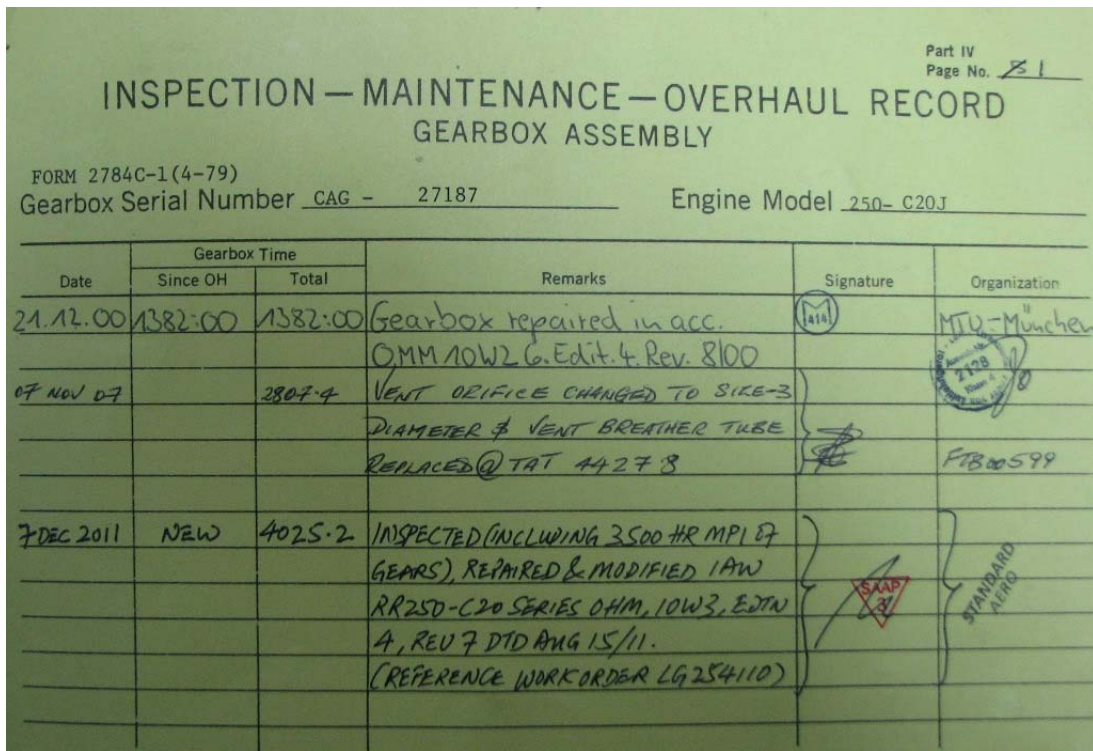 Part IV
Page No. 1
INSPECTION—MAINTENANCE—OVERHAUL RECORD
GEARBOX ASSEMBLY
FORM 2784C-1(4-79)
Gearbox Serial Number CAG - 27187 Engine Model 250- C20J
Gearbox Time
Date Since OH Total Remarks Signature Organization
21.12.00 1382:00 1382:00 Gearbox repaired in acc. M 414 MTU-München
O.MM 10W2 6.Edit.4. Rev. 8/00 2128
07 NOV 07 2807.4 VENT ORIFICE CHANGED TO SIZE-3
DIAMETER & VENT BREATHER TUBE
REPLACED @ TAT 4427.8 599
7 DEC 2011 NEW 4025.2 INSPECTED (INCLUDING 3500 HR MPI OF
GEARS), REPAIRED & MODIFIED IAW
RR250-C20 SERIES OHM, 10W3, EDTN
4, REV 7 DTD AUG 15/11.
(REFERENCE WORKORDER LG254110)
SAAP
3
STANDARD
AERO